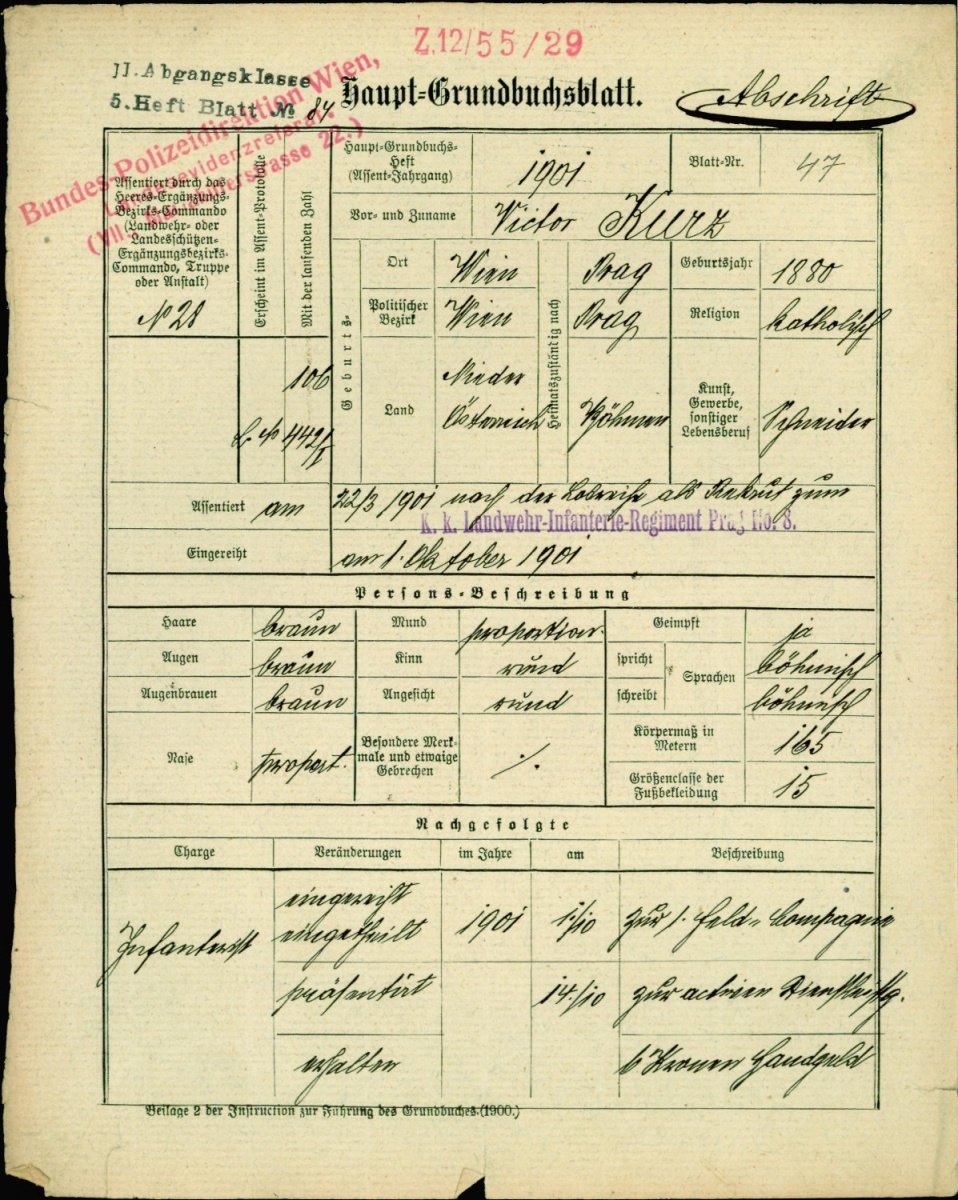 Z.12/55/29
II. Abgangsklasse
5. Heft Blatt № 84
Haupt-Grundbuchsblatt.
Abschrift
Bundes-Polizeidirektion Wien,
(VII.
22.)
Assentiert durch das
Heeres-Ergänzungs-
Bezirks-Commando
(Landwehr- oder
Landesschützen-
Ergänzungsbezirks-
Commando, Truppe
oder Anstalt)
N 28
Erscheint im Assent-Protokolle
Mit der laufenden Zahl
106
442/I
Haupt-Grundbuchs-
Heft
(Assent-Jahrgang)
1901
Blatt-Nr.
47
Vor- und Zuname
Victor Kurz
Geburts-
Ort
Wien
Heimatszuständig nach
Prag
Geburtsjahr
1880
Politischer
Bezirk
Wien
Prag
Religion
katholisch
Land
Nieder
Österreich
Böhmen
Kunst,
Gewerbe,
sonstiger
Lebensberuf
Schneider
Assentiert am
22/3 1901 nach der Losreihe als Rekrut zum
K. k. Landwehr-Infanterie-Regiment Prag No. 8.
Eingereiht
am 1. Oktober 1901
Persons-Beschreibung
Haare
braun
Mund
proportion.
Geimpft
ja
Augen
braun
Kinn
rund
spricht
Sprachen
böhmisch
Augenbrauen
braun
Angesicht
rund
schreibt
böhmisch
Nase
proport.
Besondere Merk-
male und etwaige
Gebrechen
./.
Körpermaß in
Metern
165
Größenclasse der
Fußbekleidung
15
Nachgefolgte
Charge
Veränderungen
im Jahre
am
Beschreibung
Infanterist
eingereiht
eingetheilt
1901
1./10
zur 1. Feld-Compagnie
präsentirt
14./10
zur activen Dienstleistg.
erhalten
6 Kronen Handgeld
Beilage 2 der Instruction zur Führung des Grundbuches. (1900.)